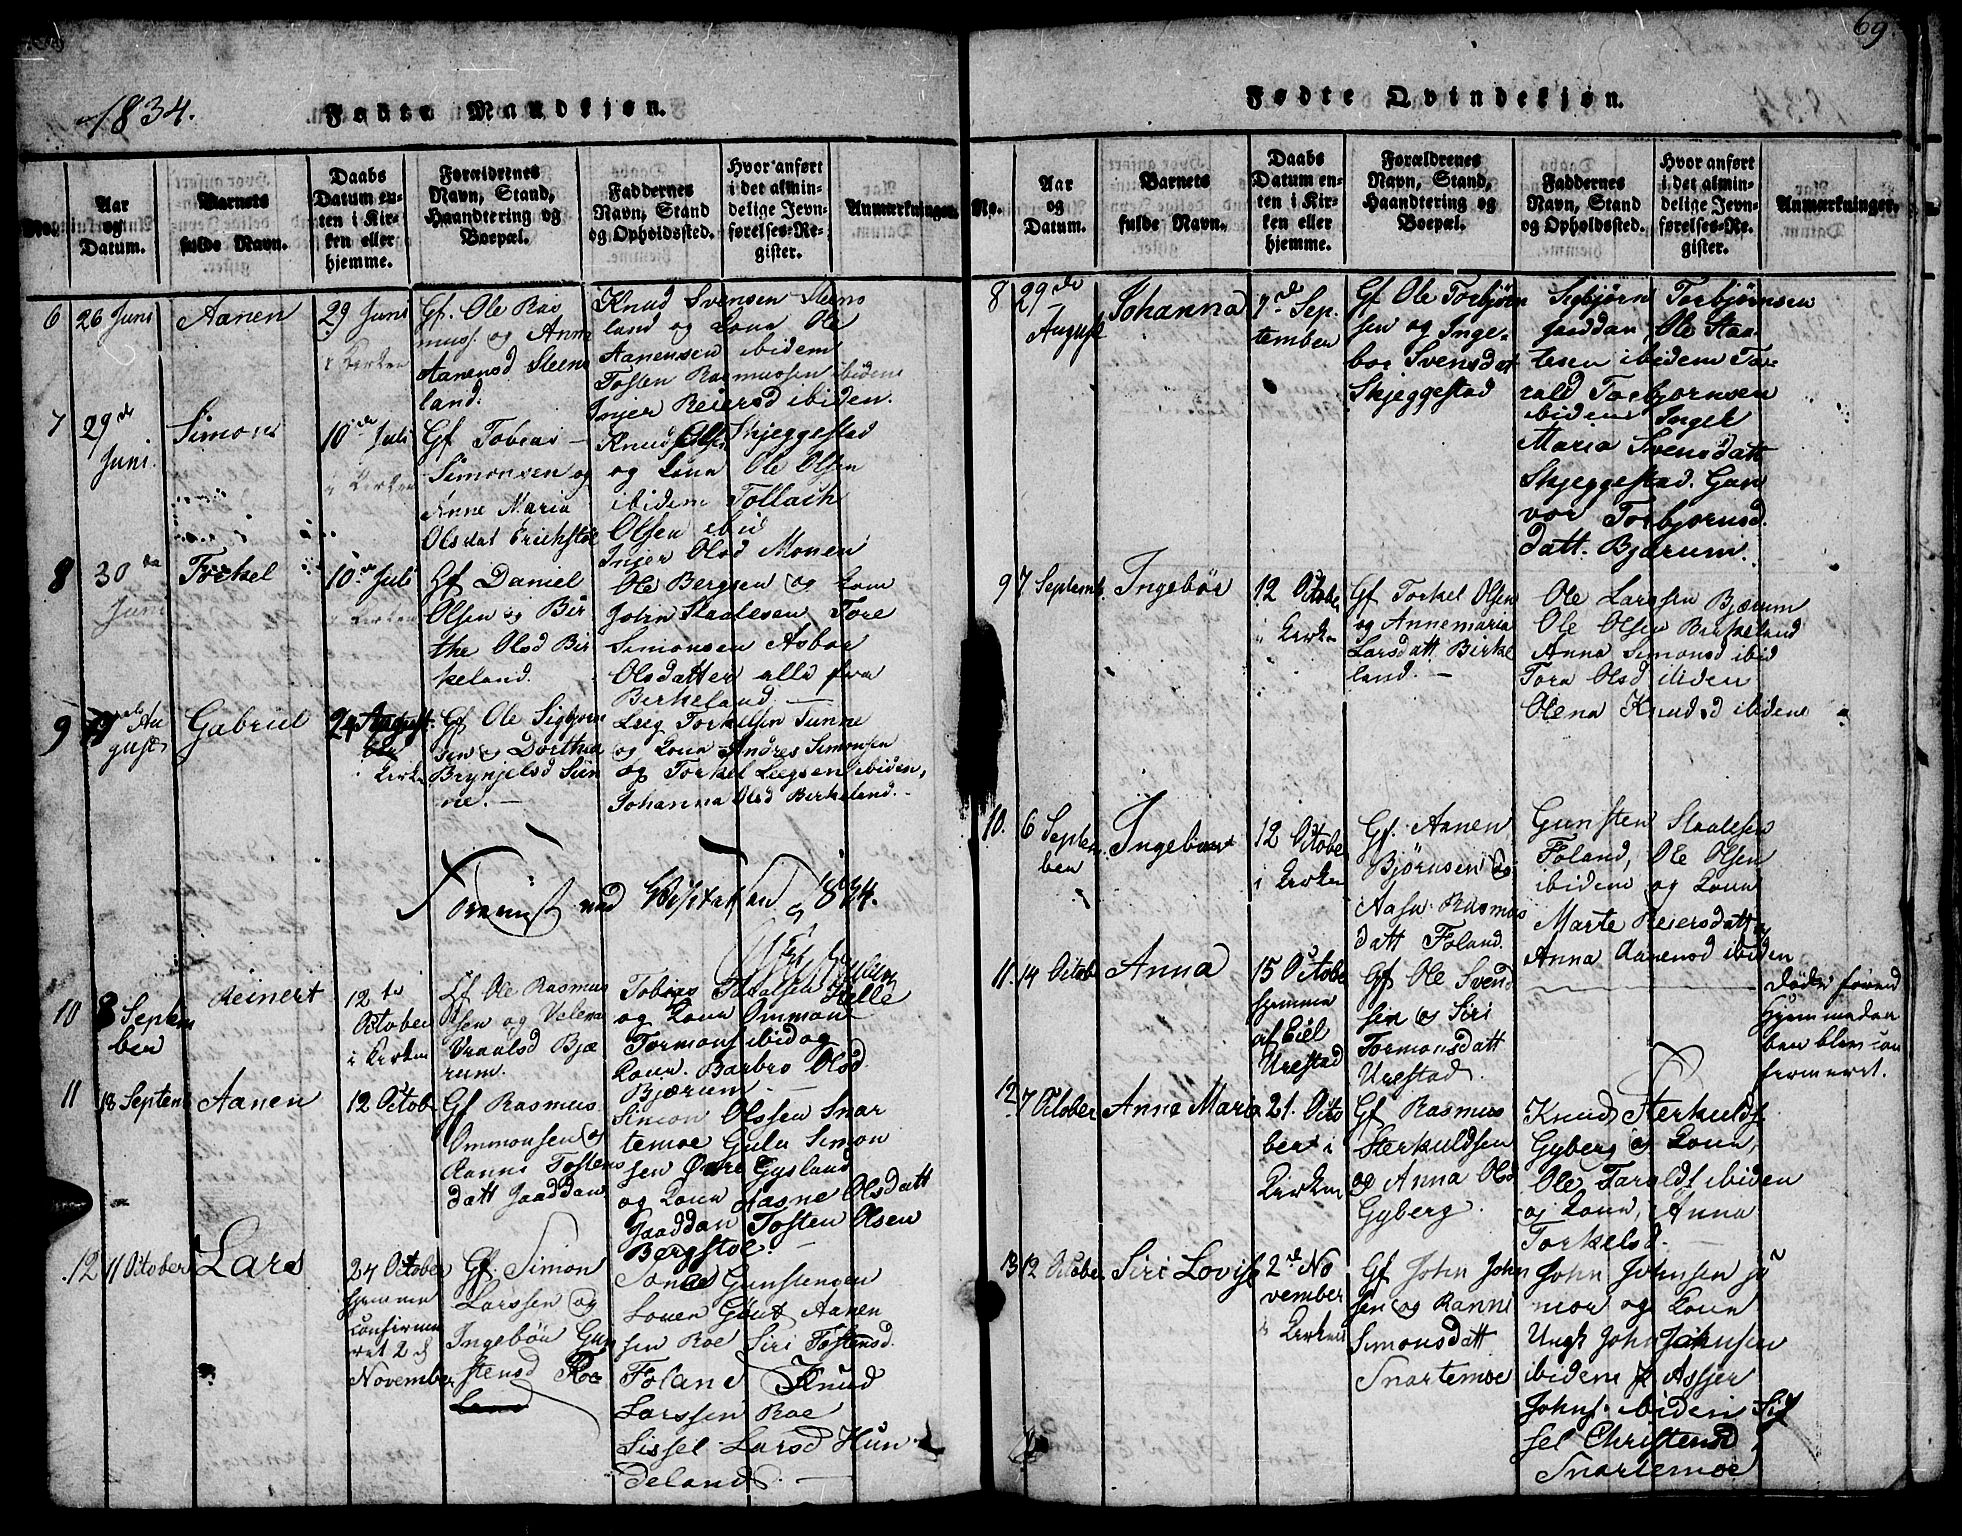 1834.
Fødte Mandkjøn.
No.
Aar
og
Datum.
Barnets
fulde Navn.
Daabs
Datum en-
ten i Kir-
ken eller
hjemme.
Forældrenes
Navn, Stand,
Haandtering og
Boepæl.
Faddernes
Navn, Stand
og Opholdssted.
Hvor anført
i det almin-
delige Jevn-
førelses-Re-
gister.
Anmærkninger.
6
26 Juni
Aanen
29 Juni
i Kirken
Gf. Ole Ras
muss. og Anne
Aanensd Steens
land.
Knud Svensen Steens
land og Kone Ole
Aanensen ibidem
Tosten Rasmussen ibidem
Injer Reiersd ibidem.
7
29de
Juni.
Simon
10de Juli
i Kirken
Gf Tobias
Simonsen og
Anne Maria
Olsdat Erichstøe
Knud Olsen Skjeggestad
og Kone Ole Olsen
ibidem Tollach
Olsen ibid
Injer Olsd Monen
8
30te
Juni
Torkel
10de Juli
i Kirken
Gf Daniel
Olsen og Bir
the Olsd Bir
keland.
Ole Bergsen og Kone
John Staalesen Tore
Simonsen Asbor
Olsdatter alle fra
Birkeland
9
Au
gust
Gabriel
24 August
i Kirke
Gf Ole Sigbjørn
sen og Dorthea
Brynjelsd Sun
ne.
Leeg Torkelsen Sunne
og Kone Andres Simonsen
og Torkel Leegsen ibidem,
Johanna Olsd Birkeland.
ved Visitation 1834.
10
8 Septem
ber
Reinert
12te
October
i Kirken
Gf Ole Rasmus
sen og Velena
Vraalsd Bjæ
rum.
Tobias Helle
og Kone Ommon
Tormons ibid og
Kone. Barbro Olsd
Bjærum
11
18 Septemb
Aanen
12 Octob
Gf Rasmus
Ommonsen og
Ranni Tostens
datt Jaaddan
Simon Olssen Snar
temoe Gulu Simon
sen Øvre Gysland
og Kone Aasne Olsdatt
Jaaddan Tosten Olsen
Bergstøe.
12
11 October
Lars
24 October
hjemme
confirme
ret 2d
November
Gf. Simon
Larssen og
Ingebør Gun
stensd Roe
Jonas Gunstensen
Gout Aanen
sen Roe Siri Tostensd.
Foland Knud
Larssen Roe
Sissel Larsd Hun
deland.
69.
Fødte Qvindekjøn.
No.
Aar
og
Datum.
Barnets
fulde Navn.
Daabs
Datum en-
ten i Kir-
ken eller
hjemme.
Forældrenes
Navn, Stand,
Haandtering og
Boepæl.
Faddernes
Navn, Stand
og Opholdssted.
Hvor anført
i det almin-
delige Jevn-
førelses-Re-
gister.
Anmærkninger.
8
29de
August
Johanna
7de Sep.
tember
Gf Ole Torbjørn
sen og Inge-
bor Svensdat
Skjeggestad
Sigbjørn Torbjørnsen
Jaaddan Ole Staa
lesen ibidem Ta-
rald Torbjornsen
ibidem Ingel
Maria Svensdatt
Skjeggestad. Gun
vor Torbjornsd.
datt. Bjærum.
9
7 Septemb.
Ingebør
12 Octobr
i Kirken
Gf Torkel Olsen
og Annemaria
Larsdatt Birke
land.
Ole Larssen Bjærum
Ole Olsen Birkeland
Anna Simonsd ibid
Tora Olsd ibidem
Olena Knudsd ibidem
10.
6 Septem
ber
Ingeborr
12 Octobe
i Kirken
Gf. Aanen
Bjørnsen og
Aase Rasmus
datt Foland.
Gunsten Staalesen
Foland, Ole Olsen
ibidem og Kone
Marte Reiersdatt og
Anna Aanensd ibidem
11.
14 Octob
Anna
15 Octobe
hjemme
af Eiel
Urestad
Gf Ole Svend
sen og Siri
Tormonsdatt
Urestad.
Døde førend
Hjemmedaa
ben blev con
fermeret.
12
7 October
Anne Maria
21. Octo
ber i
Kirken
Gf Rasmus
Sterkuldsen
og Anna Olsd
Gyberg.
Knud Sterkulds
Gyberg og Kone,
Ole Taralds ibidem
og Kone, Anna
Torkelsd.
13
12 October
Siri Lovise
2de No
vember
i Kirken
Gf John John
sen og Ranni
Simonsdatt
Snartemoe
John Johnsen
mor og Kone
Ungk John Johnsen
ibidem Assjer
Johns. ibidem Sis
sel Christensd
Snartemoe